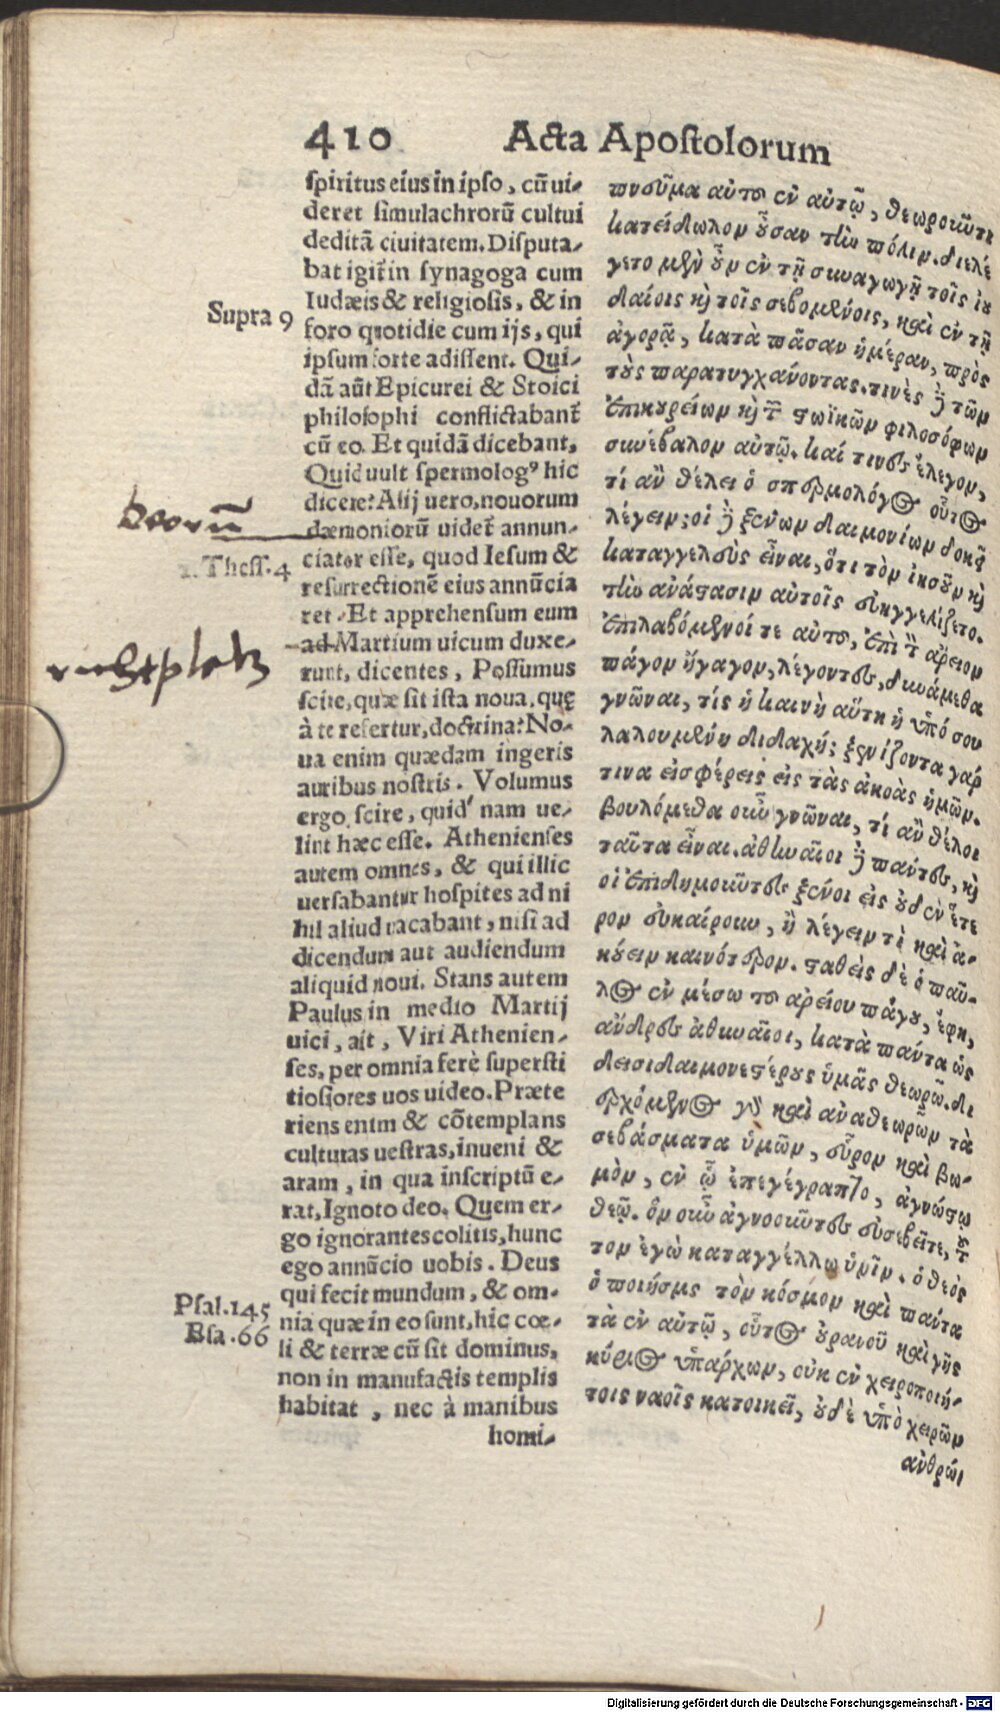 410 Acta Apostolorum
spiritus eius in ipso, cũ ui-
deret simulachrorũ cultui
deditã ciuitatem. Disputa-
bat igit̃ in synagoga cum
Iudæis & religiosis, & in
foro quotidie cum ijs, qui
ipsum forte adissent. Qui-
dã aũt Epicurei & Stoici
philosophi conflictabant̃
cũ eo. Et quidã dicebant,
Quid uult spermologꝰ hic
dicere? Alij uero, nouorum
dæmoniorũ uidet̃ annun-
ciator esse, quod Iesum &
resurrectionẽ eius annũcia
ret. Et apprehensum eum
ad Martium uicum duxe-
runt, dicentes, Possumus
scire, quæ sit ista noua, quę
à te refertur, doctrina? No-
ua enim quædam ingeris
auribus nostris. Volumus
ergo scire, quid nam ue-
lint hæc esse. Athenienses
autem omnes, & qui illic
uersabantur hospites ad ni
hil aliud uacabant, nisi ad
dicendum aut audiendum
aliquid noui. Stans autem
Paulus in medio Martij
uici, ait, Viri Athenien-
ses, per omnia ferè supersti
tiosiores uos uideo. Præte
riens enim & cõtemplans
culturas uestras, inueni &
aram, in qua inscriptũ e-
rat, Ignoto deo. Quem er-
go ignorantes colitis, hunc
ego annũcio uobis. Deus
qui fecit mundum, & om-
nia quæ in eo sunt, hic cœ-
li & terræ cũ sit dominus,
non in manufactis templis
habitat, nec à manibus
homi-
Supra 9
deorũ
1. Thess. 4
richtplatz
Psal. 145
Esa. 66
πνεῦμα αὐτοῦ ἐν αὐτῷ, θεωροῦντι
κατείδωλον οὖσαν τὴν πόλιν. διελέ
γετο μὲν οὖν ἐν τῇ συναγωγῇ τοῖς ἰου
δαίοις καὶ τοῖς σεβομένοις, καὶ ἐν τῇ
ἀγορᾷ, κατὰ πᾶσαν ἡμέραν, πρὸς
τοὺς παρατυγχάνοντας. τινὲς δὲ τῶν
ἐπικουρείων καὶ τῶν στωϊκῶν φιλοσόφων
συνέβαλον αὐτῷ. καί τινες ἔλεγον,
τί ἂν θέλει ὁ σπερμολόγος οὗτος
λέγειν; οἱ δὲ ξένων δαιμονίων δοκεῖ
καταγγελεὺς εἶναι, ὅτι τὸν ἰησοῦν καὶ
τὴν ἀνάστασιν αὐτοῖς εὐηγγελίζετο.
ἐπιλαβόμενοί τε αὐτοῦ, ἐπὶ τὸν ἄρειον
πάγον ἤγαγον, λέγοντες, δυνάμεθα
γνῶναι, τίς ἡ καινὴ αὕτη ἡ ὑπό σου
λαλουμένη διδαχή; ξενίζοντα γάρ
τινα εἰσφέρεις εἰς τὰς ἀκοὰς ἡμῶν.
βουλόμεθα οὖν γνῶναι, τί ἂν θέλοι
ταῦτα εἶναι. ἀθηναῖοι δὲ πάντες, καὶ
οἱ ἐπιδημοῦντες ξένοι εἰς οὐδὲν ἕτε
ρον εὐκαίρουν, ἢ λέγειν τὶ καὶ ἀ-
κούειν καινότερον. σταθεὶς δὲ ὁ παῦ-
λος ἐν μέσω τοῦ ἀρείου πάγου, ἔφη,
ἄνδρες ἀθηναῖοι, κατὰ πάντα ὡς
δεισιδαιμονεστέρους ὑμᾶς θεωρῶ. δι
ερχόμενος γὰρ καὶ ἀναθεωρῶν τὰ
σεβάσματα ὑμῶν, εὗρον καὶ βω-
μὸν, ἐν ᾧ ἐπεγέγραπτο, ἀγνώστῳ
θεῷ. ὃν οὖν ἀγνοοῦντες εὐσεβεῖτε, τοῦ
τον ἐγὼ καταγγέλλω ὑμῖν. ὁ θεὸς
ὁ ποιήσας τὸν κόσμον καὶ πάντα
τὰ ἐν αὐτῷ, οὗτος οὐρανοῦ καὶ γῆς
κύριος ὑπάρχων, οὐκ ἐν χειροποιή-
τοις ναοῖς κατοικεῖ, οὐδὲ ὑπὸ χειρῶν
ἀνθρώ
Digitalisierung gefördert durch die Deutsche Forschungsgemeinschaft - DFG